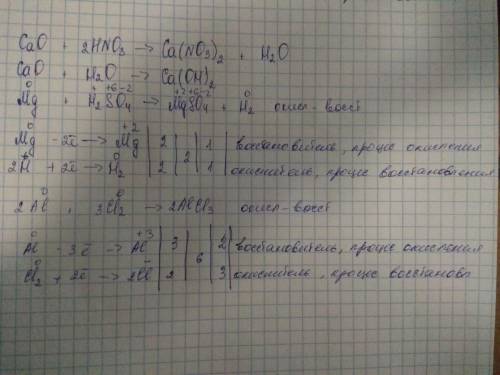 CaO + 2HNO₃ → Ca(NO₃)₂ + H₂O
CaO + H₂O → Ca(OH)₂
0 + +6 -2 +2 +6 -2 0
Mg + H₂SO₄ → MgSO₄ + H₂ окисл-восст
0 +2
Mg - 2e → Mg | 2 | 2 | 1 | восстановитель, процес окисления
2H + 2e → H₂ | 2 | | 1 | окислитель, процес восстановления
0 0
2Al + 3Cl₂ → 2AlCl₃ окисл-восст
0 +3
Al - 3e → Al | 3 | 6 | 2 | восстановитель, процес окисления
0 -
Cl₂ + 2e → 2Cl | 2 | | 3 | окислитель, процес восстановл